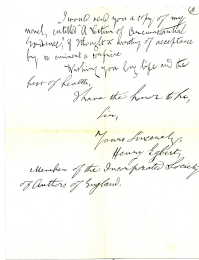 I would send you a copy of my
novel, entitled "A Victim of Circumstantial
Evidence", if thought worthy of acceptance
by so eminent a
Wishing you long life and the
best of health,
I have the honor to be,
Sir,
Yours Sincerely,
Henry Egbert,
Member of the Incorporated Society
of Authors of England.